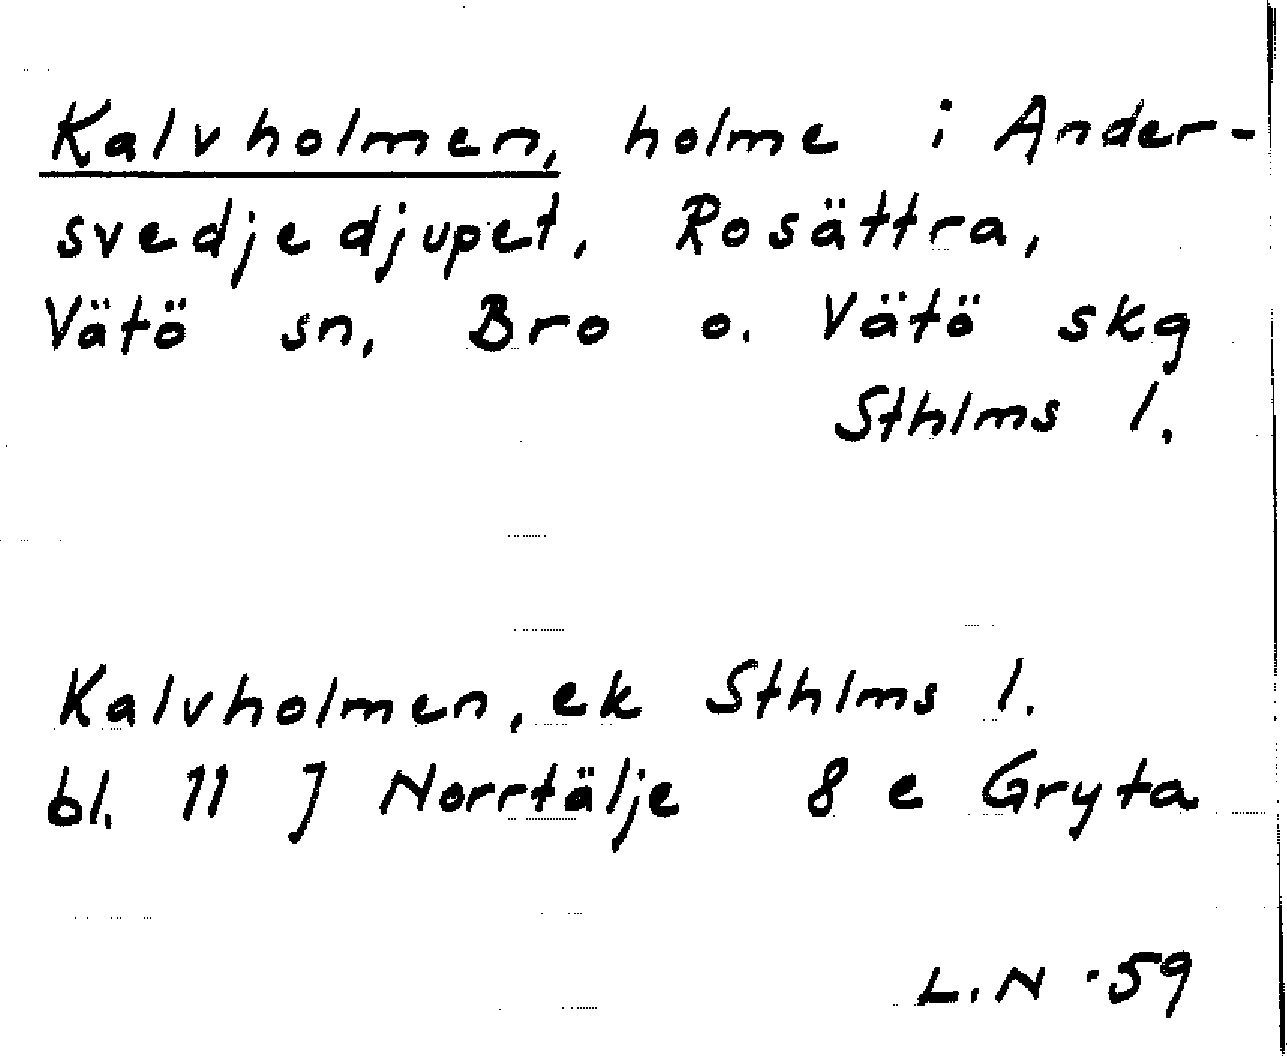 Kalvholmen, holme i Ander-
svedjedjupet, Rosättra,
Vätö sn, Bro o. Vätö skg
Sthlms l.
Kalvholmen, ek Sthlms l.
bl. 11 J Norrtälje 8 e Gryta
L.N -59